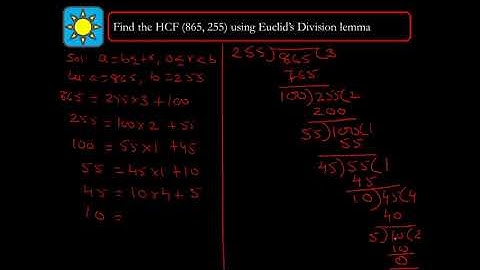 Find the HCF (865, 255) using Euclid's Division lemma
Sol: a=bq+r, 0≤r<b
Let a=865, b=255
865 = 255×3 + 100
255 = 100×2 + 55
100 = 55×1 + 45
55 = 45×1 + 10
45 = 10×4 + 5
10 =
255)865(3
765
100)255(2
200
55)100(1
55
45)55(1
45
10)45(4
40
5)10(2
10
0